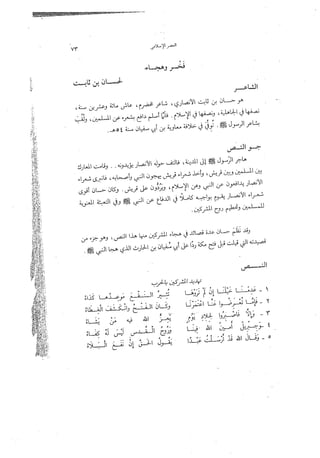 العصر الإسلامي ٧٣
فخر وهجاء
لحسان بن ثابت
الشاعر
هو حسان بن ثابت الأنصاري، شاعر مخضرم، عاش مائة وعشرين سنة،
نصفها في الجاهلية، ونصفها في الإسلام. فلمّا أسلم دافع بشعره عن المسلمين، ولُقّب
بشاعر الرسول ﷺ. توفّي في خلافة معاوية بن أبي سفيان سنة ٥٤هـ.
جو النص
هاجر الرسول ﷺ إلى المدينة، فالتف حوله الأنصار يؤيدونه. وقامت المعارك
بين المسلمين وبين قريش، وأخذ شعراء قريش يهجون النبي وأصحابه، فانبرى شعراء
الأنصار يدافعون عن النبي وعن الإسلام، ويردّون على قريش. وكان حسان أقوى
شعراء الأنصار يقوم بواجبه كاملاً في الدفاع عن النبي ﷺ وفي التعبئة المعنوية
للمسلمين وتحطيم روح المشركين.
وقد نظم حسان عدة قصائد في هجاء المشركين منها هذا النص، وهو جزء من
قصيدته التي قيلت قبل فتح مكة ردًا على أبي سفيان بن الحارث الذي هجا النبي ﷺ.
النص
تهديد المشركين بالحرب
١ - عدمنا خيلنا إن لم تروها تثير النقع موعدها كداء
٢ - فإما تعرضوا عنا اعتمرنا وكان الفتح وانكشف الغطاء
٣ - وإلا فاصبروا لجلاد يوم يعز الله فيه من يشاء
٤ - وجبريل أمين الله فينا وروح القدس ليس له كفاء
٥ - وقال الله قد أرسلت عبدا يقول الحق إن نفع البلاء